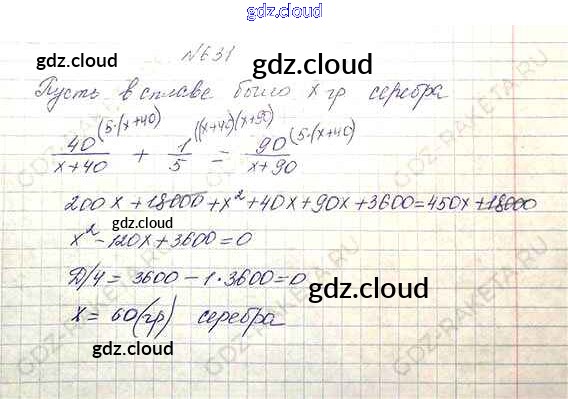 gdz.cloud
№631
gdz.cloud
Пусть в сплаве было x гр серебра
gdz.cloud
40/(x+40) (5·(x+40) + 1/5 ((x+40)(x+90) = 90/(x+90) (5·(x+40)
200x + 18000 + x² + 40x + 90x + 3600 = 450x + 18000
gdz.cloud
x² - 120x + 3600 = 0
gdz.cloud
Д/4 = 3600 - 1·3600 = 0
gdz.cloud
x = 60 (гр) серебра
gdz.cloud
GDZ-RAKETA.RU